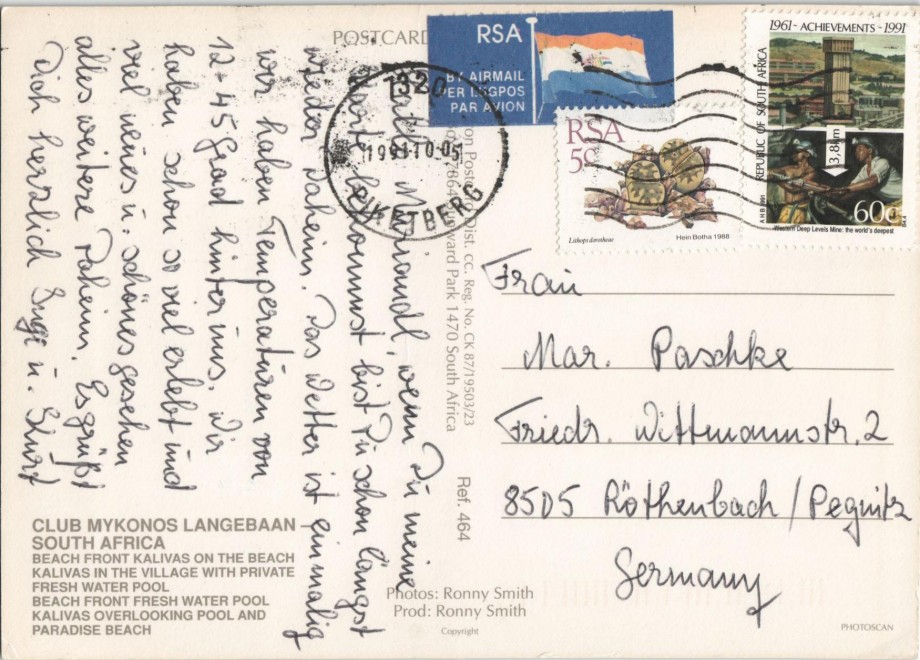 POSTCARD
RSA
BY AIRMAIL
PER LUGPOS
PAR AVION
1961 - ACHIEVEMENTS - 1991
REPUBLIC OF SOUTH AFRICA
3,8km
60c
AHB 1991
Western Deep Levels Mine: the world's deepest
RSA
5c
Lithops dorotheae
Hein Botha 1988
1320
1991-10-05
PIKETBERG
Hallo Mariandl, wenn Du meine
Karte bekommst, bist Du schon längst
wieder daheim. Das Wetter ist einmalig
wir haben Temperaturen von
12-45 Grad hinter uns. Wir
haben schon so viel erlebt und
viel neues u. schönes gesehen
alles weitere daheim. Es grüßt
Dich herzlich Inge u.
Dist. cc. Reg. No. CK 87/19503/23
Park 1470 South Africa
Ref. 464
Frau
Mar. Paschke
Friedr. Wittmannstr. 2
8505 Röthenbach / Pegnitz
Germany
CLUB MYKONOS LANGEBAAN
SOUTH AFRICA
BEACH FRONT KALIVAS ON THE BEACH
KALIVAS IN THE VILLAGE WITH PRIVATE
FRESH WATER POOL
BEACH FRONT FRESH WATER POOL
KALIVAS OVERLOOKING POOL AND
PARADISE BEACH
Photos: Ronny Smith
Prod: Ronny Smith
Copyright
PHOTOSCAN